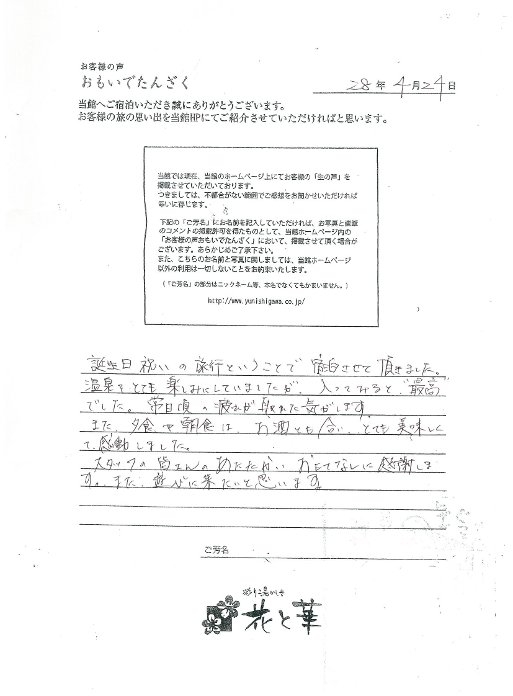 お客様の声
おもいでたんざく
28年4月24日
当館へご宿泊いただき誠にありがとうございます。
お客様の旅の思い出を当館HPにてご紹介させていただければと思います。
当館では現在、当館のホームページ上にてお客様の「生の声」を
掲載させていただいております。
つきましては、不都合がない範囲でご感想をお聞かせいただければ
幸いに存じます。
下記の「ご芳名」にお名前を記入していただければ、お写真と直筆
のコメントの掲載許可を得たものとして、当館ホームページ内の
「お客様の声おもいでたんざく」において、掲載させて頂く場合が
ございます。あらかじめご了承下さい。
また、こちらのお名前と写真に関しましては、当館ホームページ
以外の利用は一切しないことをお約束いたします。
(「ご芳名」の部分はニックネーム等、本名でなくてもかまいません。)
http://www.yunishigawa.co.jp/
誕生日祝いの旅行ということで宿泊させて頂きました。
温泉をとても楽しみにしていましたが、入ってみると、"最高"
でした。常日頃の疲れが取れた気がします。
また、夕食や朝食は、お酒とも合い、とても美味しく
て感動しました。
スタッフの皆さんのあたたかいおもてなしに感謝しま
す。また、遊びに来たいと思います
ご芳名
花と華